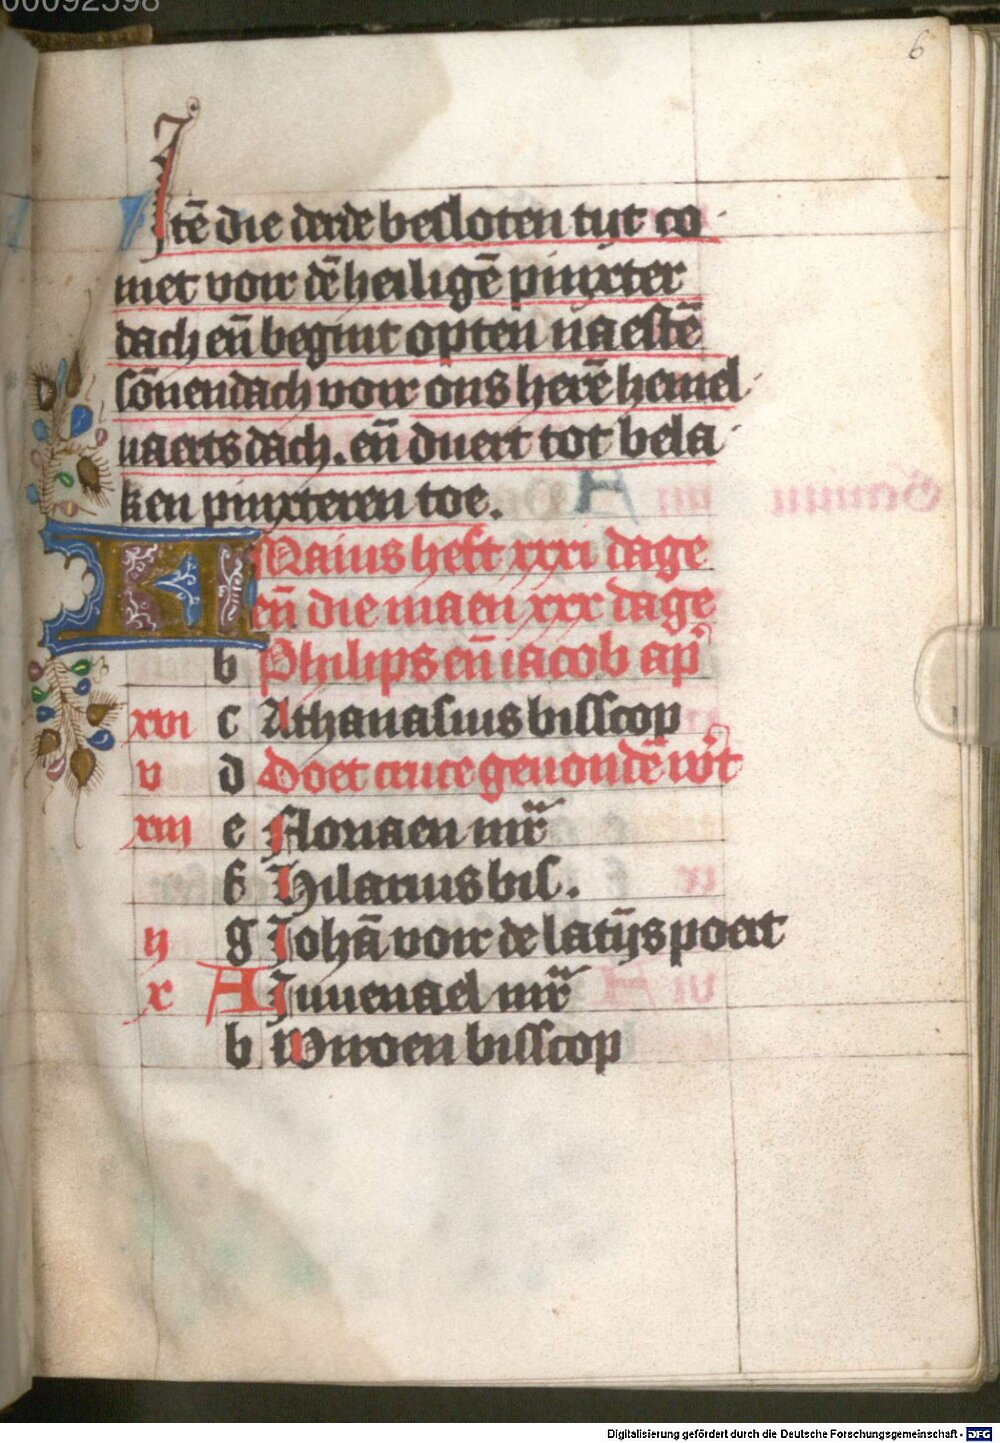 00092598
6
Itē die derde besloten tijt co
met voir dē heiligē pinxter
dach eñ begint opten naestē
sōnendach voir ons herē hemel
vaerts dach. eñ duert tot bela
ken pinxteren toe.
Maius heft xxxi dage
eñ die maen xxx dage
b Philips eñ iacob ap'
xvi c Athanasius bisscop
v d Doet cruce gevondē w't
xiii e Floriaen mr̄
f Hilarius bis.
ij g Johā voir de latijs poert
x A Juvenael mr̄
b Wiroen bisscop
Digitalisierung gefördert durch die Deutsche Forschungsgemeinschaft - DFG